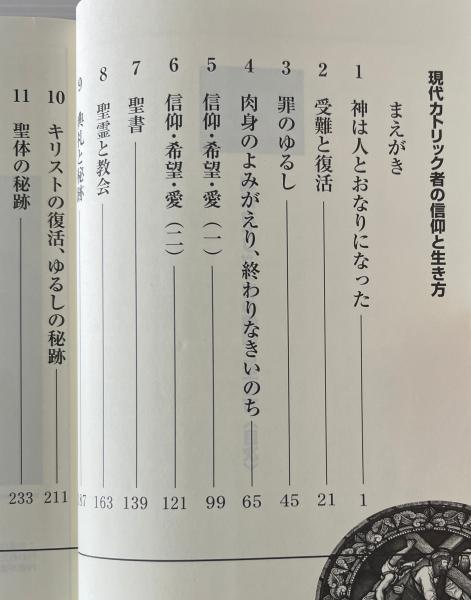 現代カトリック者の信仰と生き方
まえがき
1 神は人とおなりになった 1
2 受難と復活 21
3 罪のゆるし 45
4 肉身のよみがえり、終わりなきいのち 65
5 信仰・希望・愛（一） 99
6 信仰・希望・愛（二） 121
7 聖書 139
8 聖霊と教会 163
9 典礼と秘跡 87
10 キリストの復活、ゆるしの秘跡 211
11 聖体の秘跡 233